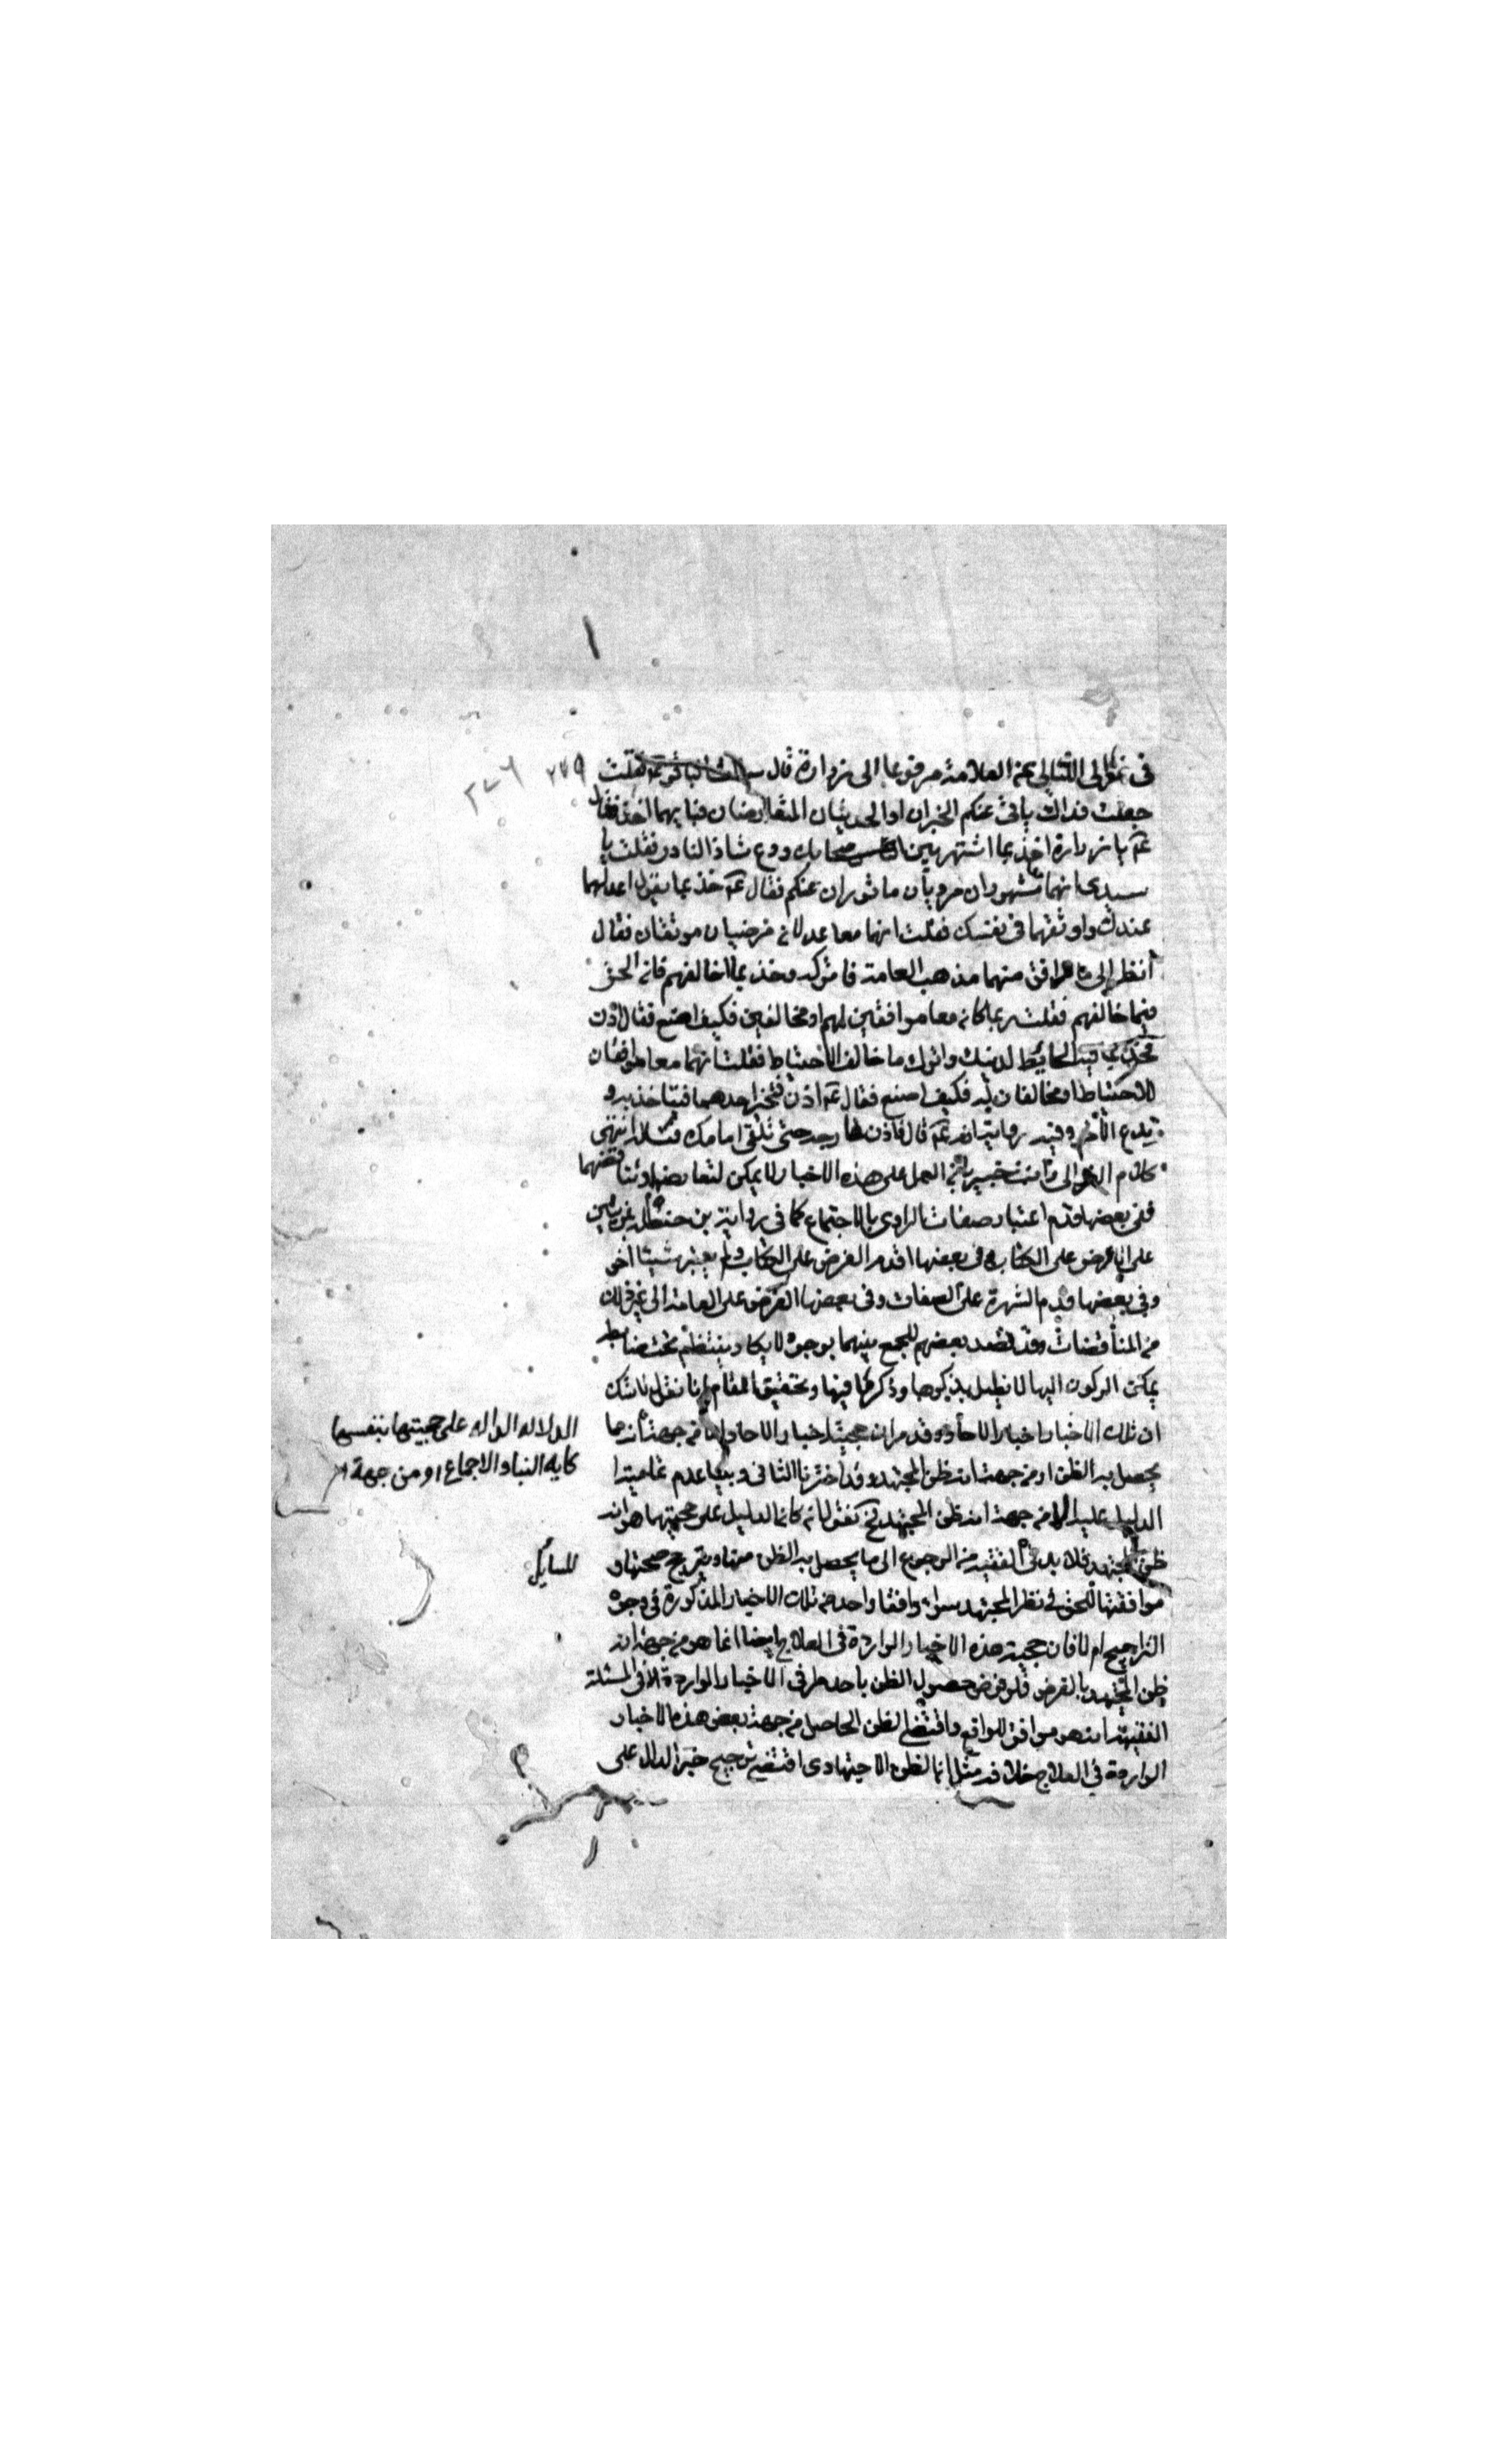 في غوالي اللئالي عن العلامة مرفوعا الى زرارة قال سالت الباقر عم فقلت
٢٧٩
جعلت فداك ياتي عنكم الخبران او الحديثان المتعارضان فبايهما اخذ فقال
عم يا زرارة خذ بما اشتهر بين اصحابك ودع شاذ النادر فقلت يا
سيدي انهما مشهوران مرويان ماثوران عنكم فقال عم خذ بما يقول اعدلهما
عندك واوثقهما في نفسك فقلت انهما معا عدلان مرضيان موثقان فقال
انظر الى ما وافق منهما مذهب العامة فاتركه وخذ بما خالفهم فان الحق
فيما خالفهم فقلت ربما كانا معا موافقين لهم او مخالفين فكيف اصنع فقال اذن
فخذ بما فيه الحايطة لدينك واترك ما خالف الاحتياط فقلت انهما معا موافقان
للاحتياط او مخالفان له فكيف اصنع فقال عم اذن فتخير احدهما فتاخذ به و
تدع الاخر وفيه رواية انه عم قال فاذن فارجه حتى تلقى امامك فتسئله انتهى
كلام الغوالي وانت خبير بان العمل على هذه الاخبار لا يمكن لتعارضها وتناقضهما
ففي بعضها قدم اعتبار صفات الراوي بالاجتماع كما في رواية بن حنظلة
على العرض على الكتاب وفي بعضها قدم العرض على الكتاب ولم يعتبر شيئا اخر
وفي بعضها قدم الشهرة على الصفات وفي بعضها العرض على العامة الى غير ذلك
من المناقضات وقد تصد بعضهم للجمع بينهما بوجوه لا يكاد ينتظم تحت ضابط
يمكن الركون اليها لا نطيل بذكرها وذكر ما فيها وتحقيق المقام انا نقول لا شك
ان تلك الاخبار اخبار الاحاد وقد مر ان حجية اخبار الاحاد اما من جهة انها مما
الدلالة الدالة على حجيتها بنفسها
كاية النبا والاجماع او من جهة
يحصل به الظن او من جهة انه ظن المجتهد وقد اخترنا الثاني وبينا عدم تمامية
الدليل عليه الا من جهة انه ظن المجتهد فح نقول لما كان الدليل على حجيتها هو انه
ظن المجتهد فلا بد في الفقيه من الرجوع الى ما يحصل به الظن منها ويترجح صحتها و
موافقتها للحق في نظر المجتهد سواء وافقا واحد من تلك الاخبار المذكورة في وجوه
التراجيح ام لا فان حجية هذه الاخبار الواردة في العلاج ايضا انما هو من جهة انه
ظن المجتهد بالفرض فلو فرض حصول الظن باحد طرفي الاخبار الواردة في المسئلة
الفقهية انه هو موافق للواقع واقتضى الظن الحاصل من جهة بعض هذه الاخبار
الواردة في العلاج خلافه مثلا ان الظن الاجتهادي اقتضى ترجيح خبر الدال على